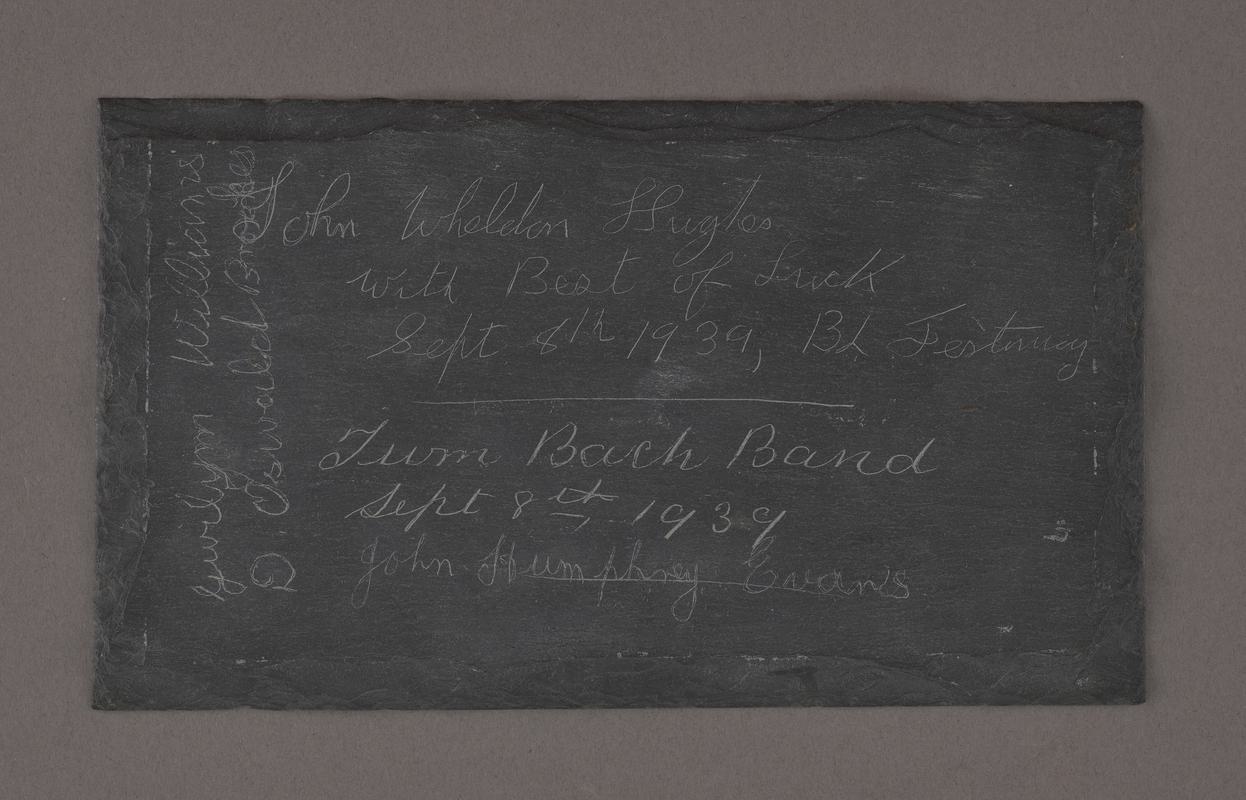 John Wheldon Hughes
with Best of Luck
Sept 8th 1939, Bl Festiniog
Turm Bach Band
Sept 8th 1939
John Humphrey Evans
Gwilym Williams
D Oswald Brookes